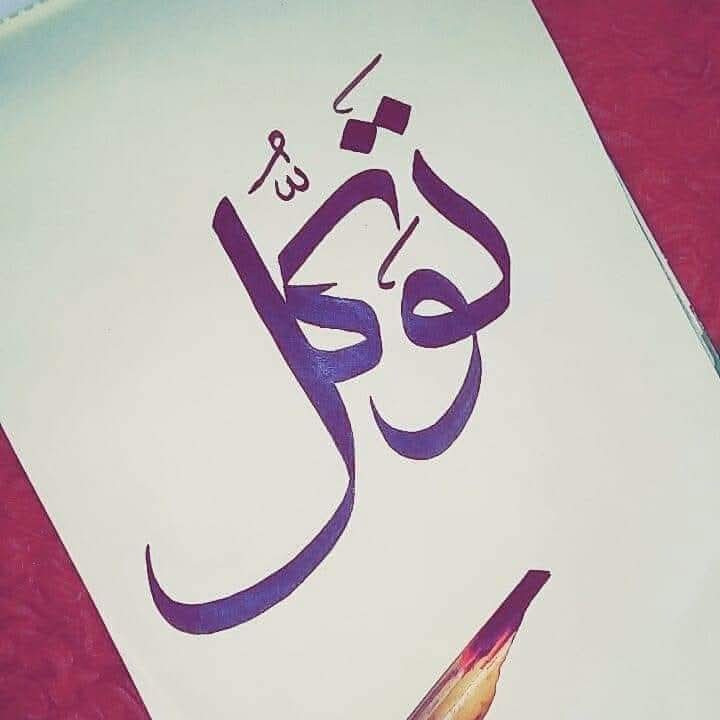 تَوَكُّل